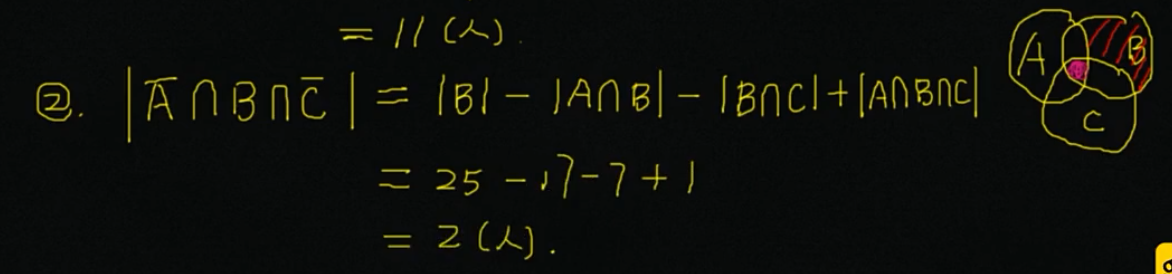 = 11 (人).
②. |Ā∩B∩C̄| = |B| - |A∩B| - |B∩C| + |A∩B∩C|
= 25 - 17 - 7 + 1
= 2 (人).
A B C